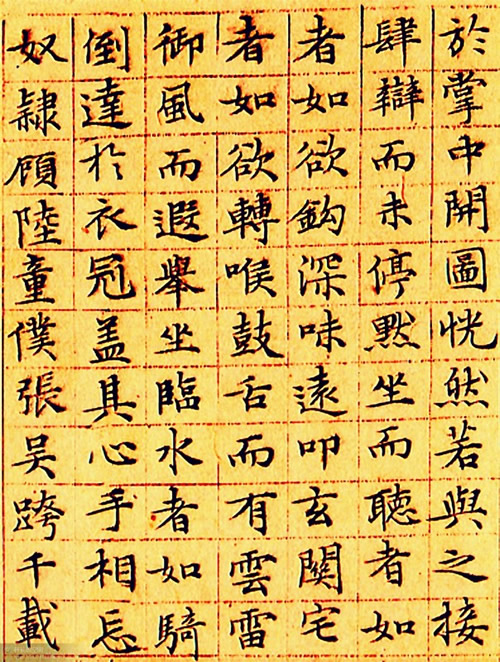 於掌中開圖恍然若與之接
肆辯而未停默坐而聽者如
者如欲鈎深味遠叩玄關宅
者如欲轉喉鼓舌而有雲雷
御風而遐舉坐臨水者如騎
倒達於衣冠盖其心手相忘
奴隸顧陸童僕張吳跨千載